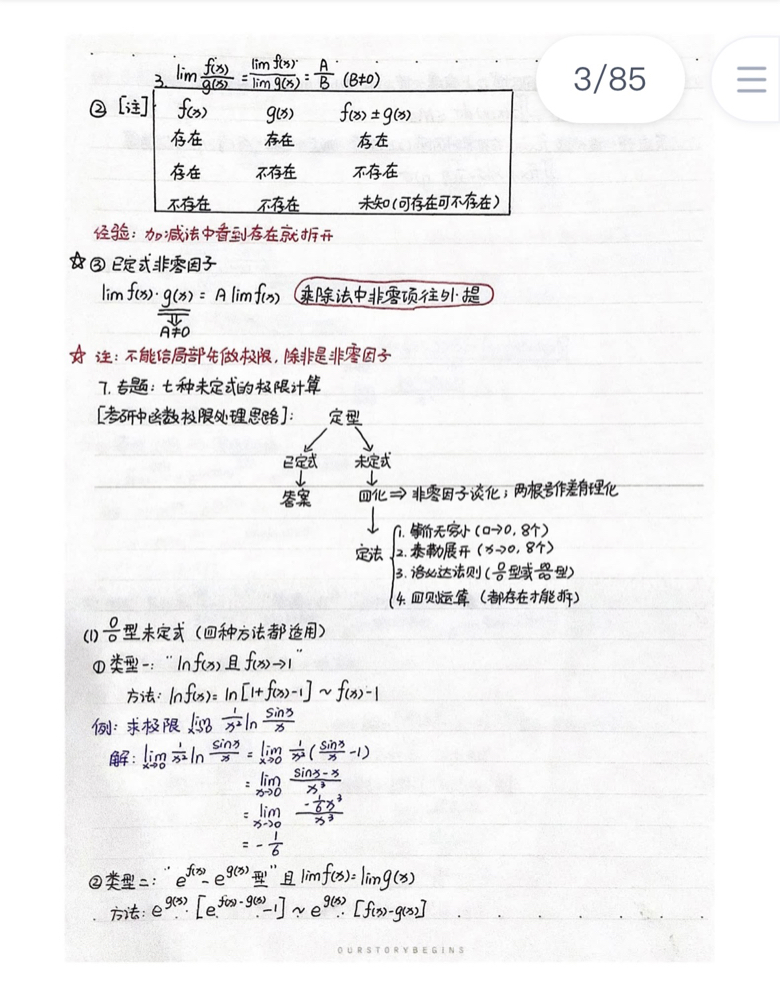 3/85
3. lim f(x)/g(x) = lim f(x)/lim g(x) = A/B (B≠0)
② [注] f(x) g(x) f(x)±g(x)
存在 存在 存在
存在 不存在 不存在
不存在 不存在 未知(可存在可不存在)
经验: 加减法中看到存在就拆开
☆③ 已定式非零因子
lim f(x)·g(x) = A lim f(x) 乘除法中非零项往外提
⇓
A≠0
☆ 注: 不能给局部先做极限, 除非是非零因子
7. 专题: 七种未定式的极限计算
[考研中函数极限处理思路]: 定型
已定式 未定式
答案 四化⇒非零因子淡化; 两根号作差有理化
定法
1. 等价无穷小(□→0, 8个)
2. 泰勒展开(x→0, 8个)
3. 洛必达法则(0/0型或∞/∞型)
4. 四则运算 (都存在才能拆)
(1) 0/0型未定式 (四种方法都适用)
①类型一: "ln f(x) 且 f(x)→1"
方法: ln f(x) = ln[1+f(x)-1] ~ f(x)-1
例: 求极限 lim x→0 1/x² ln sinx/x
解: lim x→0 1/x² ln sinx/x = lim x→0 1/x² (sinx/x -1)
= lim x→0 (sinx-x)/x³
= lim x→0 (-1/6 x³)/x³
= -1/6
②类型二: "e^f(x) - e^g(x) 型" 且 lim f(x) = lim g(x)
方法: e^g(x) · [e^(f(x)-g(x)) -1] ~ e^g(x) · [f(x)-g(x)]
OURSTORYBEGINS